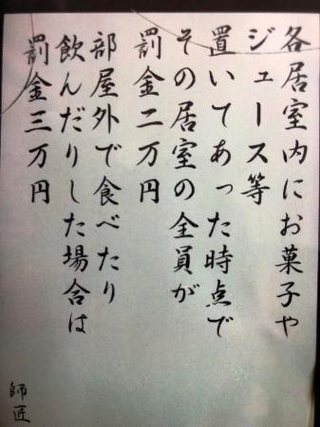 各居室内にお菓子や
ジュース等
置いてあった時点で
その居室の全員が
罰金二万円
部屋外で食べたり
飲んだりした場合は
罰金三万円
師匠